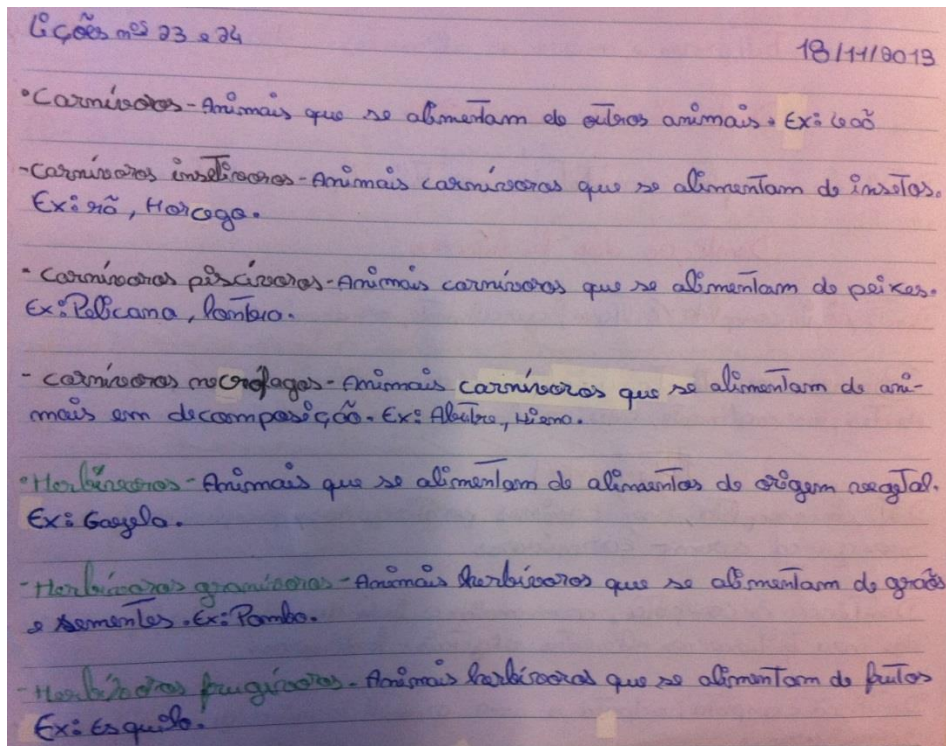 Lições nos 23 e 24
18/11/2013
•Carnívoros-Animais que se alimentam de outros animais. Ex: Leão
-Carnívoros insetívoros-Animais carnívoros que se alimentam de insetos.
Ex: rã, Morcego.
-Carnívoros piscívoros-Animais carnívoros que se alimentam de peixes.
Ex: Pelicano, lontra.
-Carnívoros necrófagos-Animais carnívoros que se alimentam de ani-
mais em decomposição. Ex: Abutre, Hiena.
•Herbívoros-Animais que se alimentam de alimentos de origem vegetal.
Ex: Gazela.
-Herbívoros granívoros-Animais herbívoros que se alimentam de grãos
e sementes. Ex: Pombo.
-Herbívoros frugívoros-Animais herbívoros que se alimentam de frutos
Ex: Esquilo.